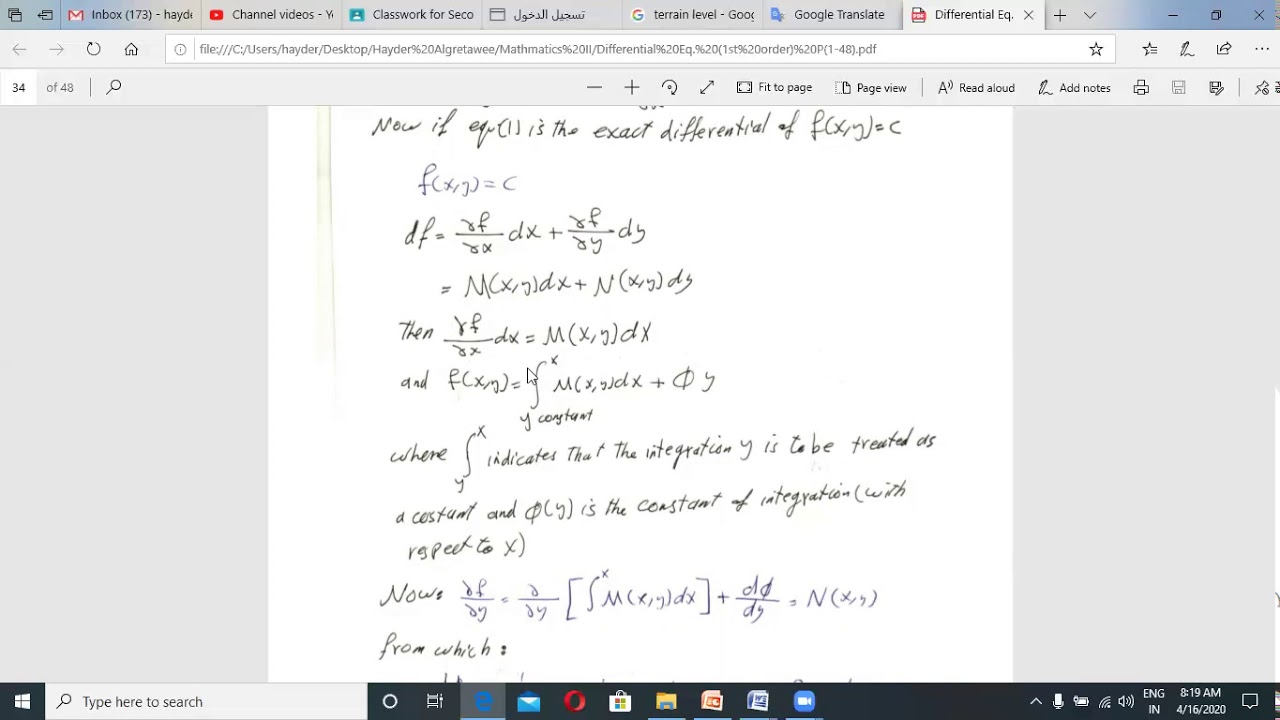 Inbox (113) - hayde
Channel videos - Y
Classwork for Seco
تسجيل الدخول
terrain level - Goog
Google Translate
Differential Eq.
file:///C:/Users/hayder/Desktop/Hayder%20Algretawee/Mathmatics%20II/Differential%20Eq.%20(1st%20order)%20P(1-48).pdf
34 of 48
Fit to page
Page view
Read aloud
Add notes
Now if equ(1) is the exact differential of f(x,y)=c
f(x,y)=c
df = ∂f/∂x dx + ∂f/∂y dy
= M(x,y)dx + N(x,y)dy
Then ∂f/∂x dx = M(x,y)dx
and f(x,y)= ∫^x M(x,y)dx + Φ y
y constant
where ∫_y^x indicates That The integration y is to be treated as
a costant and Φ(y) is the constant of integration (with
respect to x)
Now: ∂f/∂y = ∂/∂y [∫^x M(x,y)dx] + dΦ/dy = N(x,y)
from which :
Type here to search
ENG
8:19 AM
IN
4/16/2020